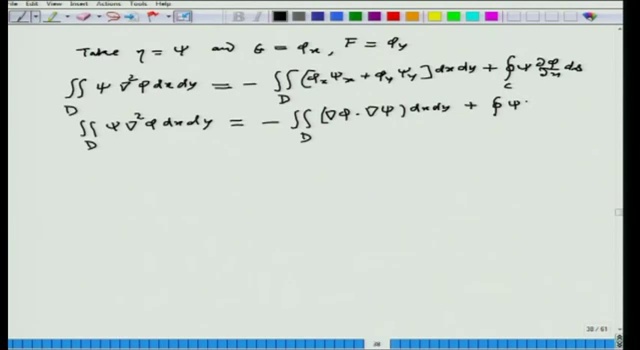 Edit View Insert Actions Tools Help
Take η = Ψ and G = φ_x, F = φ_y
∬_D Ψ ∇²φ dx dy = - ∬_D [φ_x Ψ_x + φ_y Ψ_y] dx dy + ∮_C Ψ ∂φ/∂n ds
∬_D Ψ ∇²φ dx dy = - ∬_D (∇φ · ∇Ψ) dx dy + ∮ Ψ
38 / 61
38